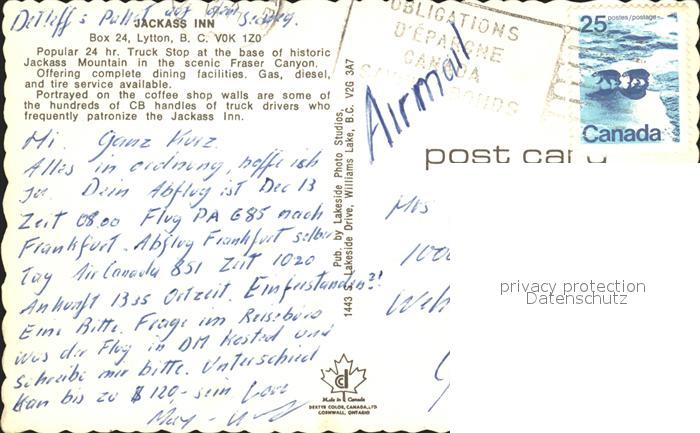 Detleff's Paket auf dem Seeweg.
JACKASS INN
Box 24, Lytton, B. C. V0K 1Z0
Popular 24 hr. Truck Stop at the base of historic
Jackass Mountain in the scenic Fraser Canyon.
Offering complete dining facilities. Gas, diesel,
and tire service available.
Portrayed on the coffee shop walls are some of
the hundreds of CB handles of truck drivers who
frequently patronize the Jackass Inn.
Mi. Ganz Kurz.
Alles in ordnung, hoffe ich
ja. Dein Abflug ist Dec 13
Zeit 08.00 Flug PA 685 nach
Frankfurt. Abflug Frankfurt selber
Tag Air Canada 851 Zeit 1020
Ankunft 1335 Ortzeit. Einferstanden?!
Eine Bitte. Frage im Reisebüro
was der Flug in DM kosted und
schreibe mir bitte. Unterschied
kan bis zu $ 120- sein Love
May -
Pub. by Lakeside Photo Studios,
1443 S. Lakeside Drive, Williams Lake, B.C. V2G 3A7
Made in Canada
DEXTER COLOR, CANADA, LTD.
CORNWALL, ONTARIO
OBLIGATIONS
D'ÉPARGNE
CANADA
SAVINGS BONDS
Airmail
25 postes/postage
Canada
post card
Mrs
100
Weh
privacy protection
Datenschutz